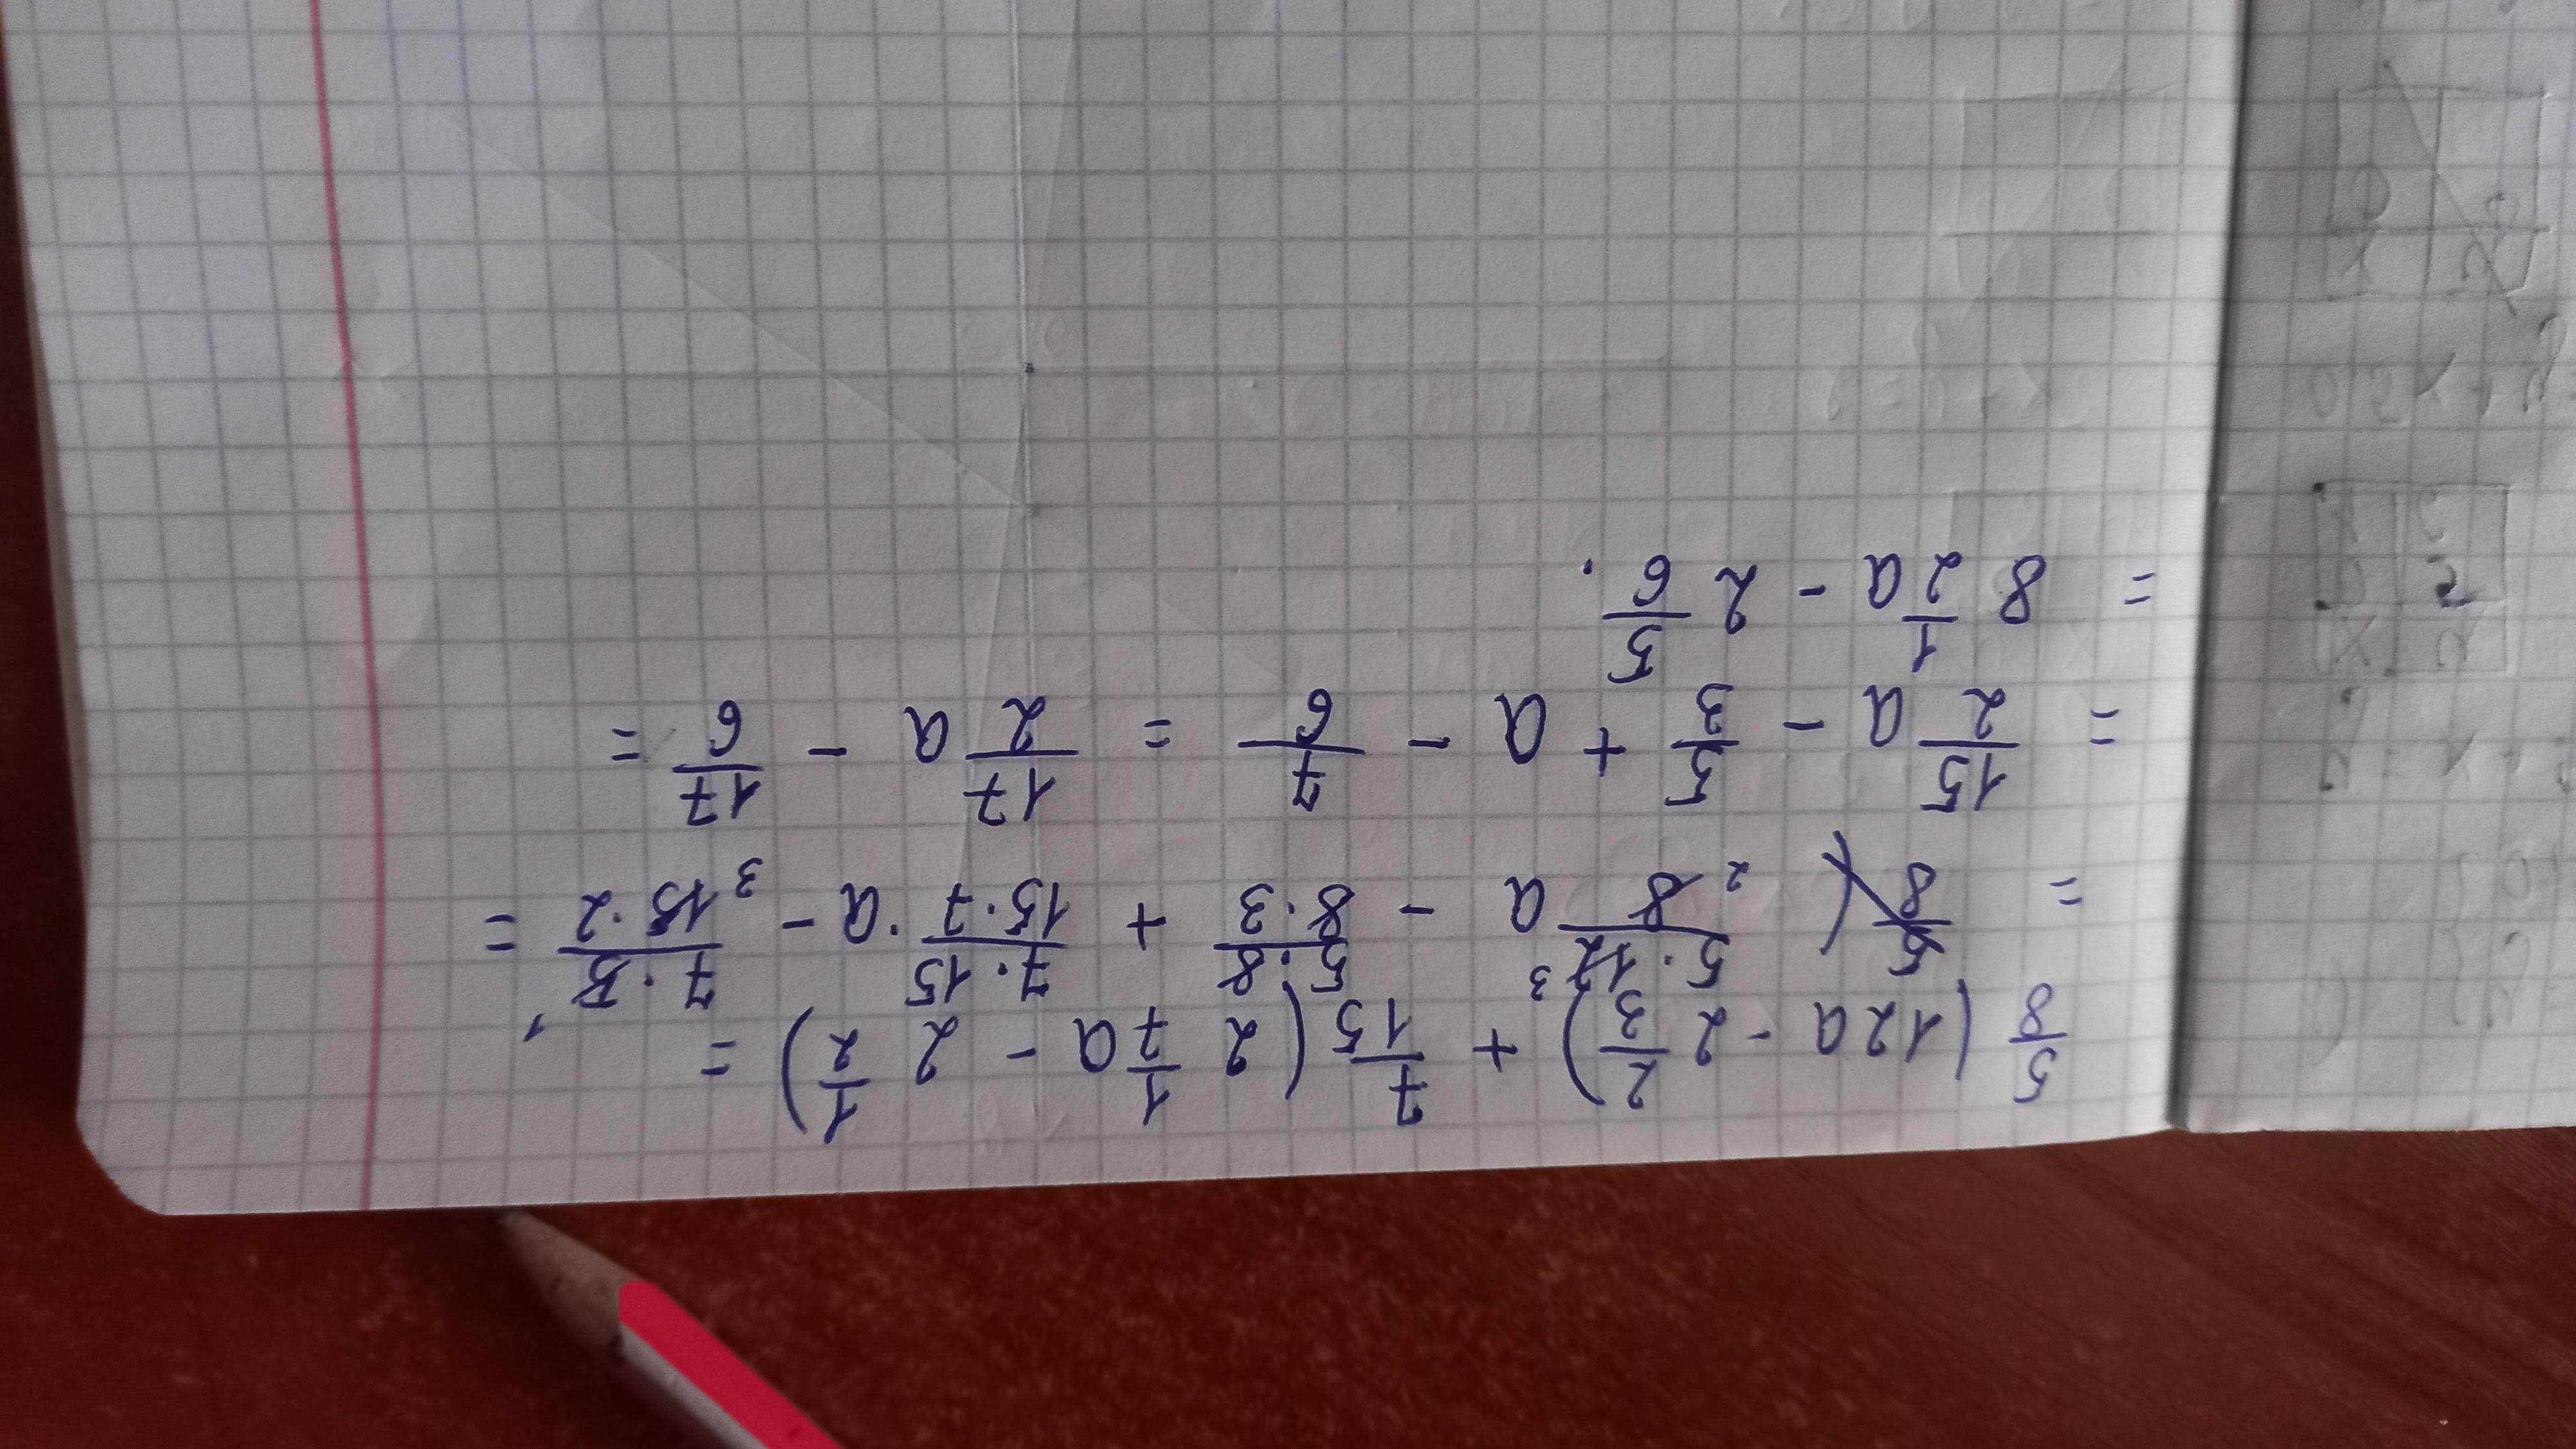 5/8 (12a - 2 2/3) + 7/15 (2 1/7 a - 2 1/2) =
= (5·12³)/(8 ²) a - (5·8)/(8·3) + (7·15)/(15·7) · a - (7·5 ¹)/(³ 15·2) =
= 15/2 a - 5/3 + a - 7/6 = 17/2 a - 17/6 =
= 8 1/2 a - 2 5/6.